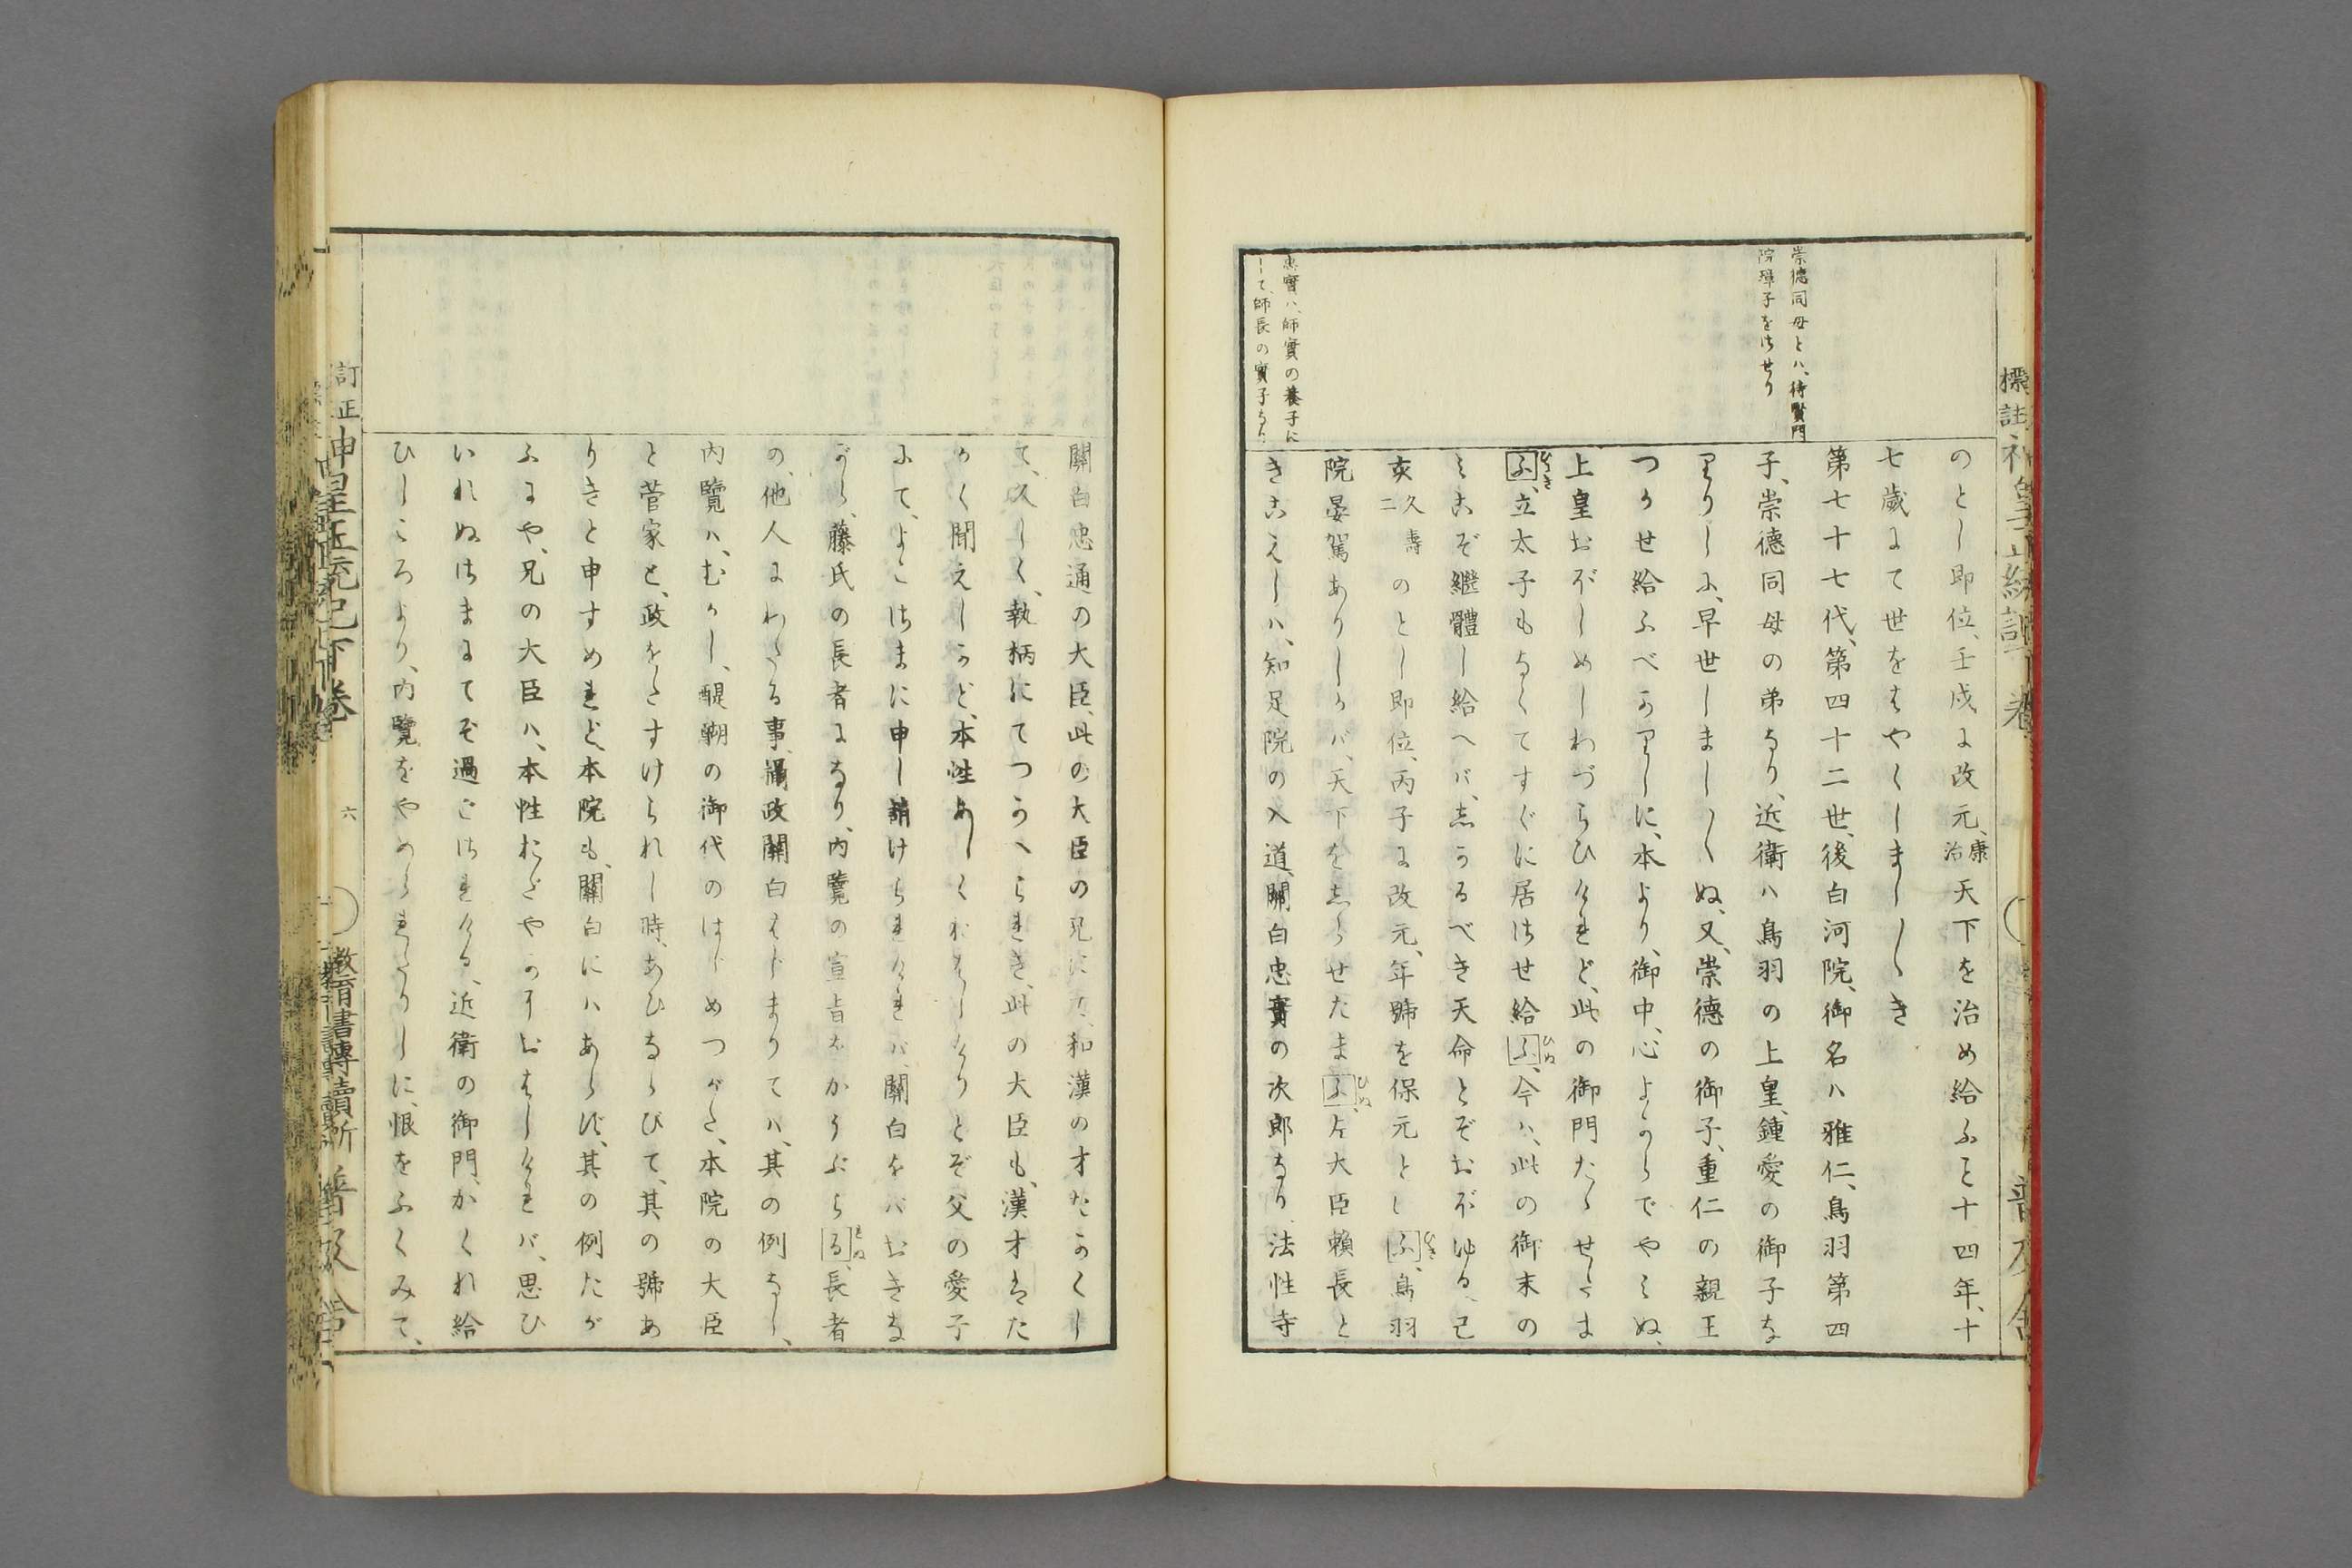 崇德同母とハ、待賢門
院璋子をはせり
忠實ハ、師實の養子に
して、師長の實子なり
のとし即位、壬戌に改元、康治天下を治め給ふこと十四年、十
七歲にて世をはやくしましましき
第七十七代、第四十二世、後白河院、御名ハ雅仁、鳥羽第四
子、崇德同母の弟なり、近衛ハ鳥羽の上皇、鍾愛の御子な
りしに、早世しましましぬ、又、崇德の御子、重仁の親王
つかせ給ふべかりしに、本より、御中、心よからでやミぬ、
上皇おぼしめしわづらひけれど、此の御門たゝせたま
ふ、立太子もなくてすぐに居させ給ふ、今ハ、此の御末の
ミこそ繼體し給へバ、志かるべき天命とぞおぼゆる、己
亥久壽二のとし即位、丙子に改元、年號を保元とし ふ、鳥羽
院晏駕ありしかバ、天下を志らせたまふ、左大臣賴長と
きこえしハ、知足院の入道、關白忠實の次郎なり、法性寺
關白忠通の大臣、此の大臣の兄にて、和漢の才たかくし
て、久しく、執柄にてつかへられき、此の大臣も、漢才はた
かく聞えしかど、本性あしくおはしけりとぞ父の愛子
にて、よこさまに申し請けられけれバ、關白をバおきな
がら、藤氏の長者になり、内覽の宣旨をかうぶらる、長者
の、他人にわたる事、攝政關白はじまりてハ、其の例なし、
内覽ハ、むかし、醍醐の御代のはじめつがた、本院の大臣
と菅家と、政をたすけられし時、あひならびて、其の號あ
りきと申すめれど、本院も、關白にハあらず、其の例たが
ふにや、兄の大臣ハ、本性おだやかにおはしけれバ、思ひ
いれぬさまにてぞ過ごされける、近衛の御門、かくれ給
ひしころより、内覽をやめられたりしに、恨をふくみて、
訂正 神皇正統記下卷 六 教育書轉讀所